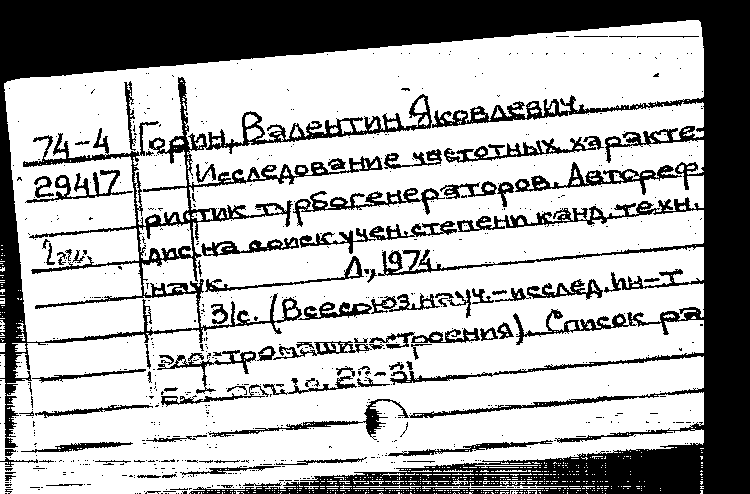 74-4 Горин, Валентин Яковлевич.
29417 Исследование частотных характе-
ристик турбогенераторов. Автореф.
2 дис. на соиск. учен. степени канд. техн.
наук. Л., 1974.
31с. (Всесоюз. науч.-исслед. ин-т
электромашиностроения). Список ра
с. 28-31.